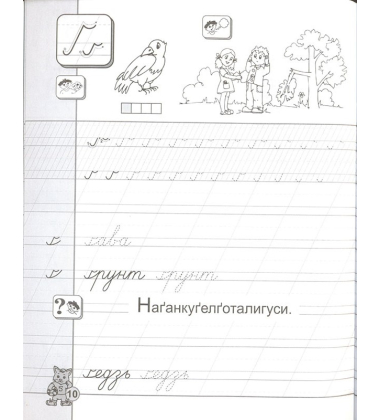 Ґ ґ
ґ ґава
ґ ґрунт ґрунт
? Наґанкуґелґоталигуси.
ґедзь ґедзь
10